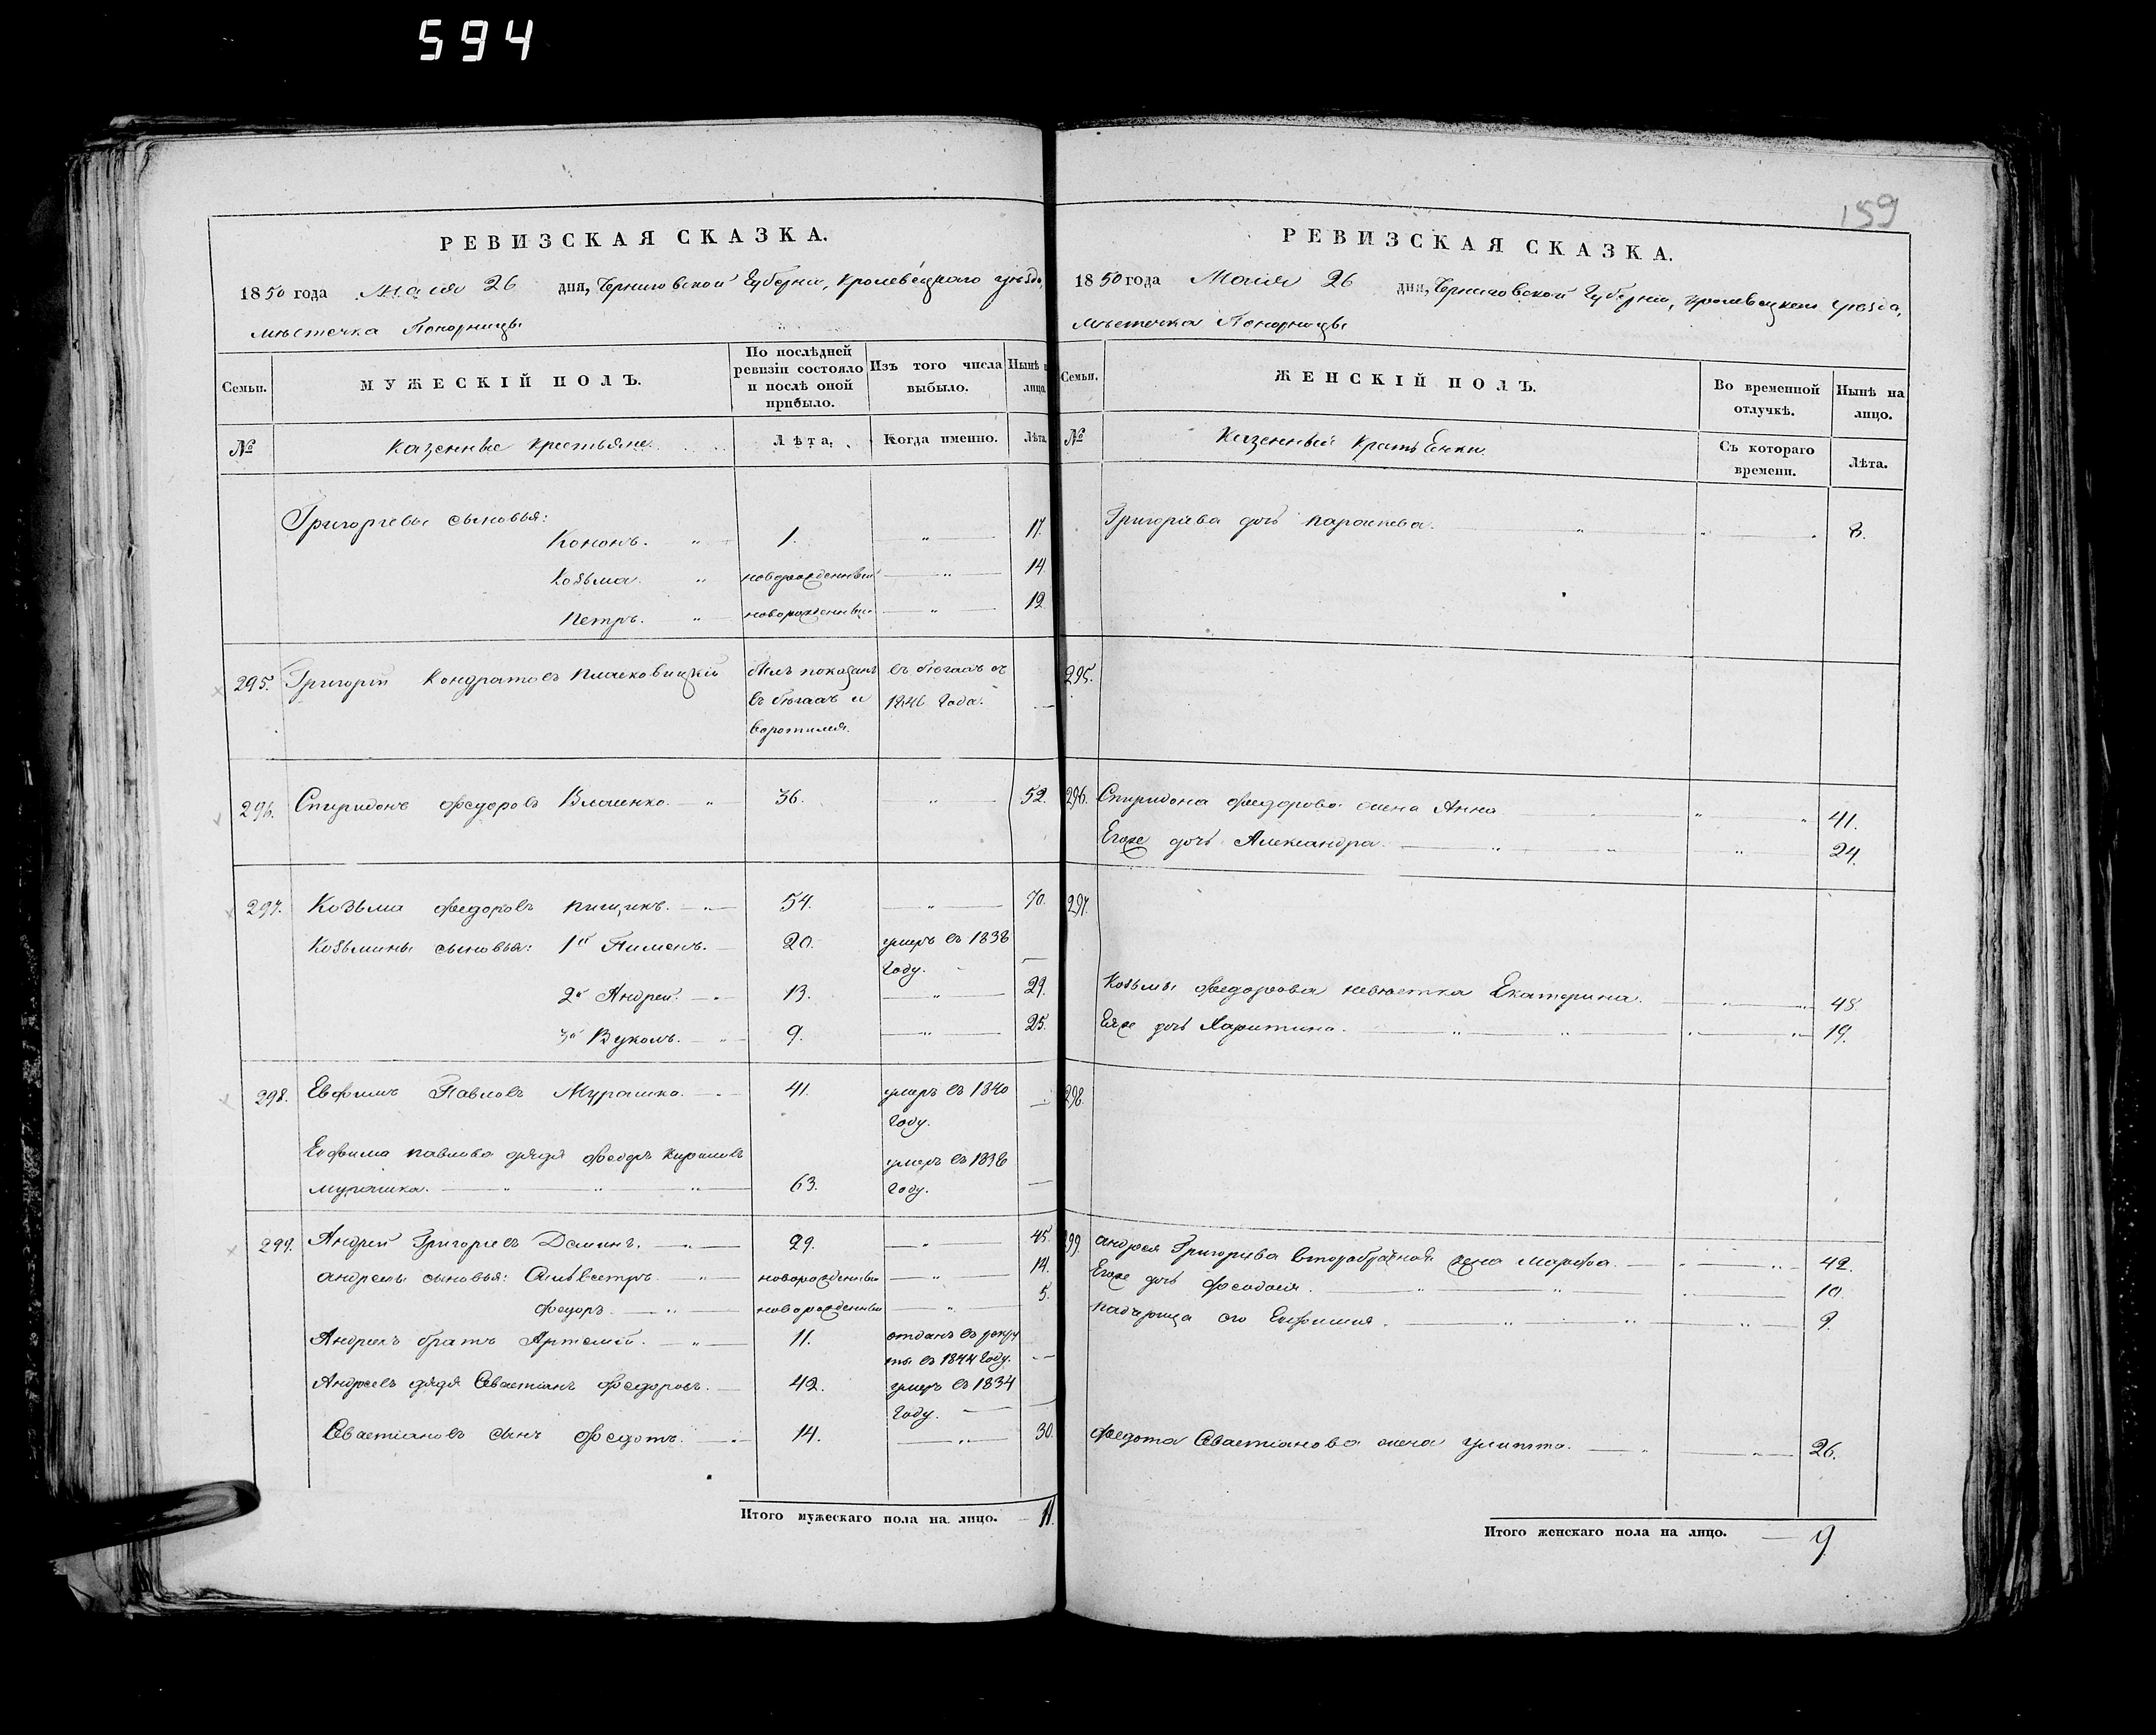 594
159
РЕВИЗСКАЯ СКАЗКА.
1850 года Маія 26 дня, Черниговской Губерніи, Кролевецкаго уѣзда,
мѣстечка Понорницы
Семьи. МУЖЕСКІЙ ПОЛЪ. По послѣдней ревизіи состояло и послѣ оной прибыло. Изъ того числа выбыло. Нынѣ н лицо.
№ Казенные Крестьяне. Лѣта. Когда именно. Лѣта.
Григорьевы сыновья:
Кононъ. " 1. " 17.
Козьма. " новорожденный " 14.
Петръ. " новорожденный " 12.
295. Григорій Кондратовъ былъ показанъ въ бѣгахъ съ
въ бѣгахъ и 1846 Года. —
воротился.
296. Спиридонъ Федоровъ Власенко. " 36. " 52.
297. Козьма Федоровъ Пищикъ. " 54. " 70.
Козьмины сыновья: 1й Пименъ. 20. умеръ въ 1838
Году. —
2й Андрей. 13. " 29.
3й Вуколъ. 9. " 25.
298. Евфимъ Павловъ Мурашко. 41. умеръ въ 1840 —
Году.
Евфима Павлова дядя Федоръ умеръ въ 1838
Мурашка. " " " 63. Году. —
299. Андрей Григорьевъ Деминъ. " 29. " 45.
Андреевы сыновья: Сильвестръ. " новорожденный " 14.
Федоръ. " новорожденный " 5.
Андреевъ братъ Артемій. " 11. отданъ въ рекру
ты въ 1844 Году. —
Андреевъ дядя Севастіанъ Федоровъ. 42. умеръ въ 1834
Году. —
Севастіановъ сынъ Федотъ. 14. " 30.
Итого мужескаго пола на лицо. — 11.
РЕВИЗСКАЯ СКАЗКА.
1850 года Маія 26 дня, Черниговской Губерніи, Кролевецкаго уѣзда,
мѣстечка Понорницы
Семьи. ЖЕНСКІЙ ПОЛЪ. Во временной отлучкѣ. Нынѣ на лицо.
№ Казенныи Крестьенки. Съ котораго времени. Лѣта.
Григорьева дочь Параскева. " " 8.
295.
296. Спиридона Федорова жена Анна " " 41.
Егоже дочь Александра. " " " 24.
297.
Козьмы Федорова невѣстка Екатерина. " " 48.
Еяже дочь Харитина. " " " " 19.
298.
299. Андрея Григорьева второбрачная жена Марфа. " " 42.
Егоже дочь Феодосія. " " " 10.
Падчерица его Евфимія. " " " 9.
Федота Севастіанова жена Улита. " " 26.
Итого женскаго пола на лицо. — 9